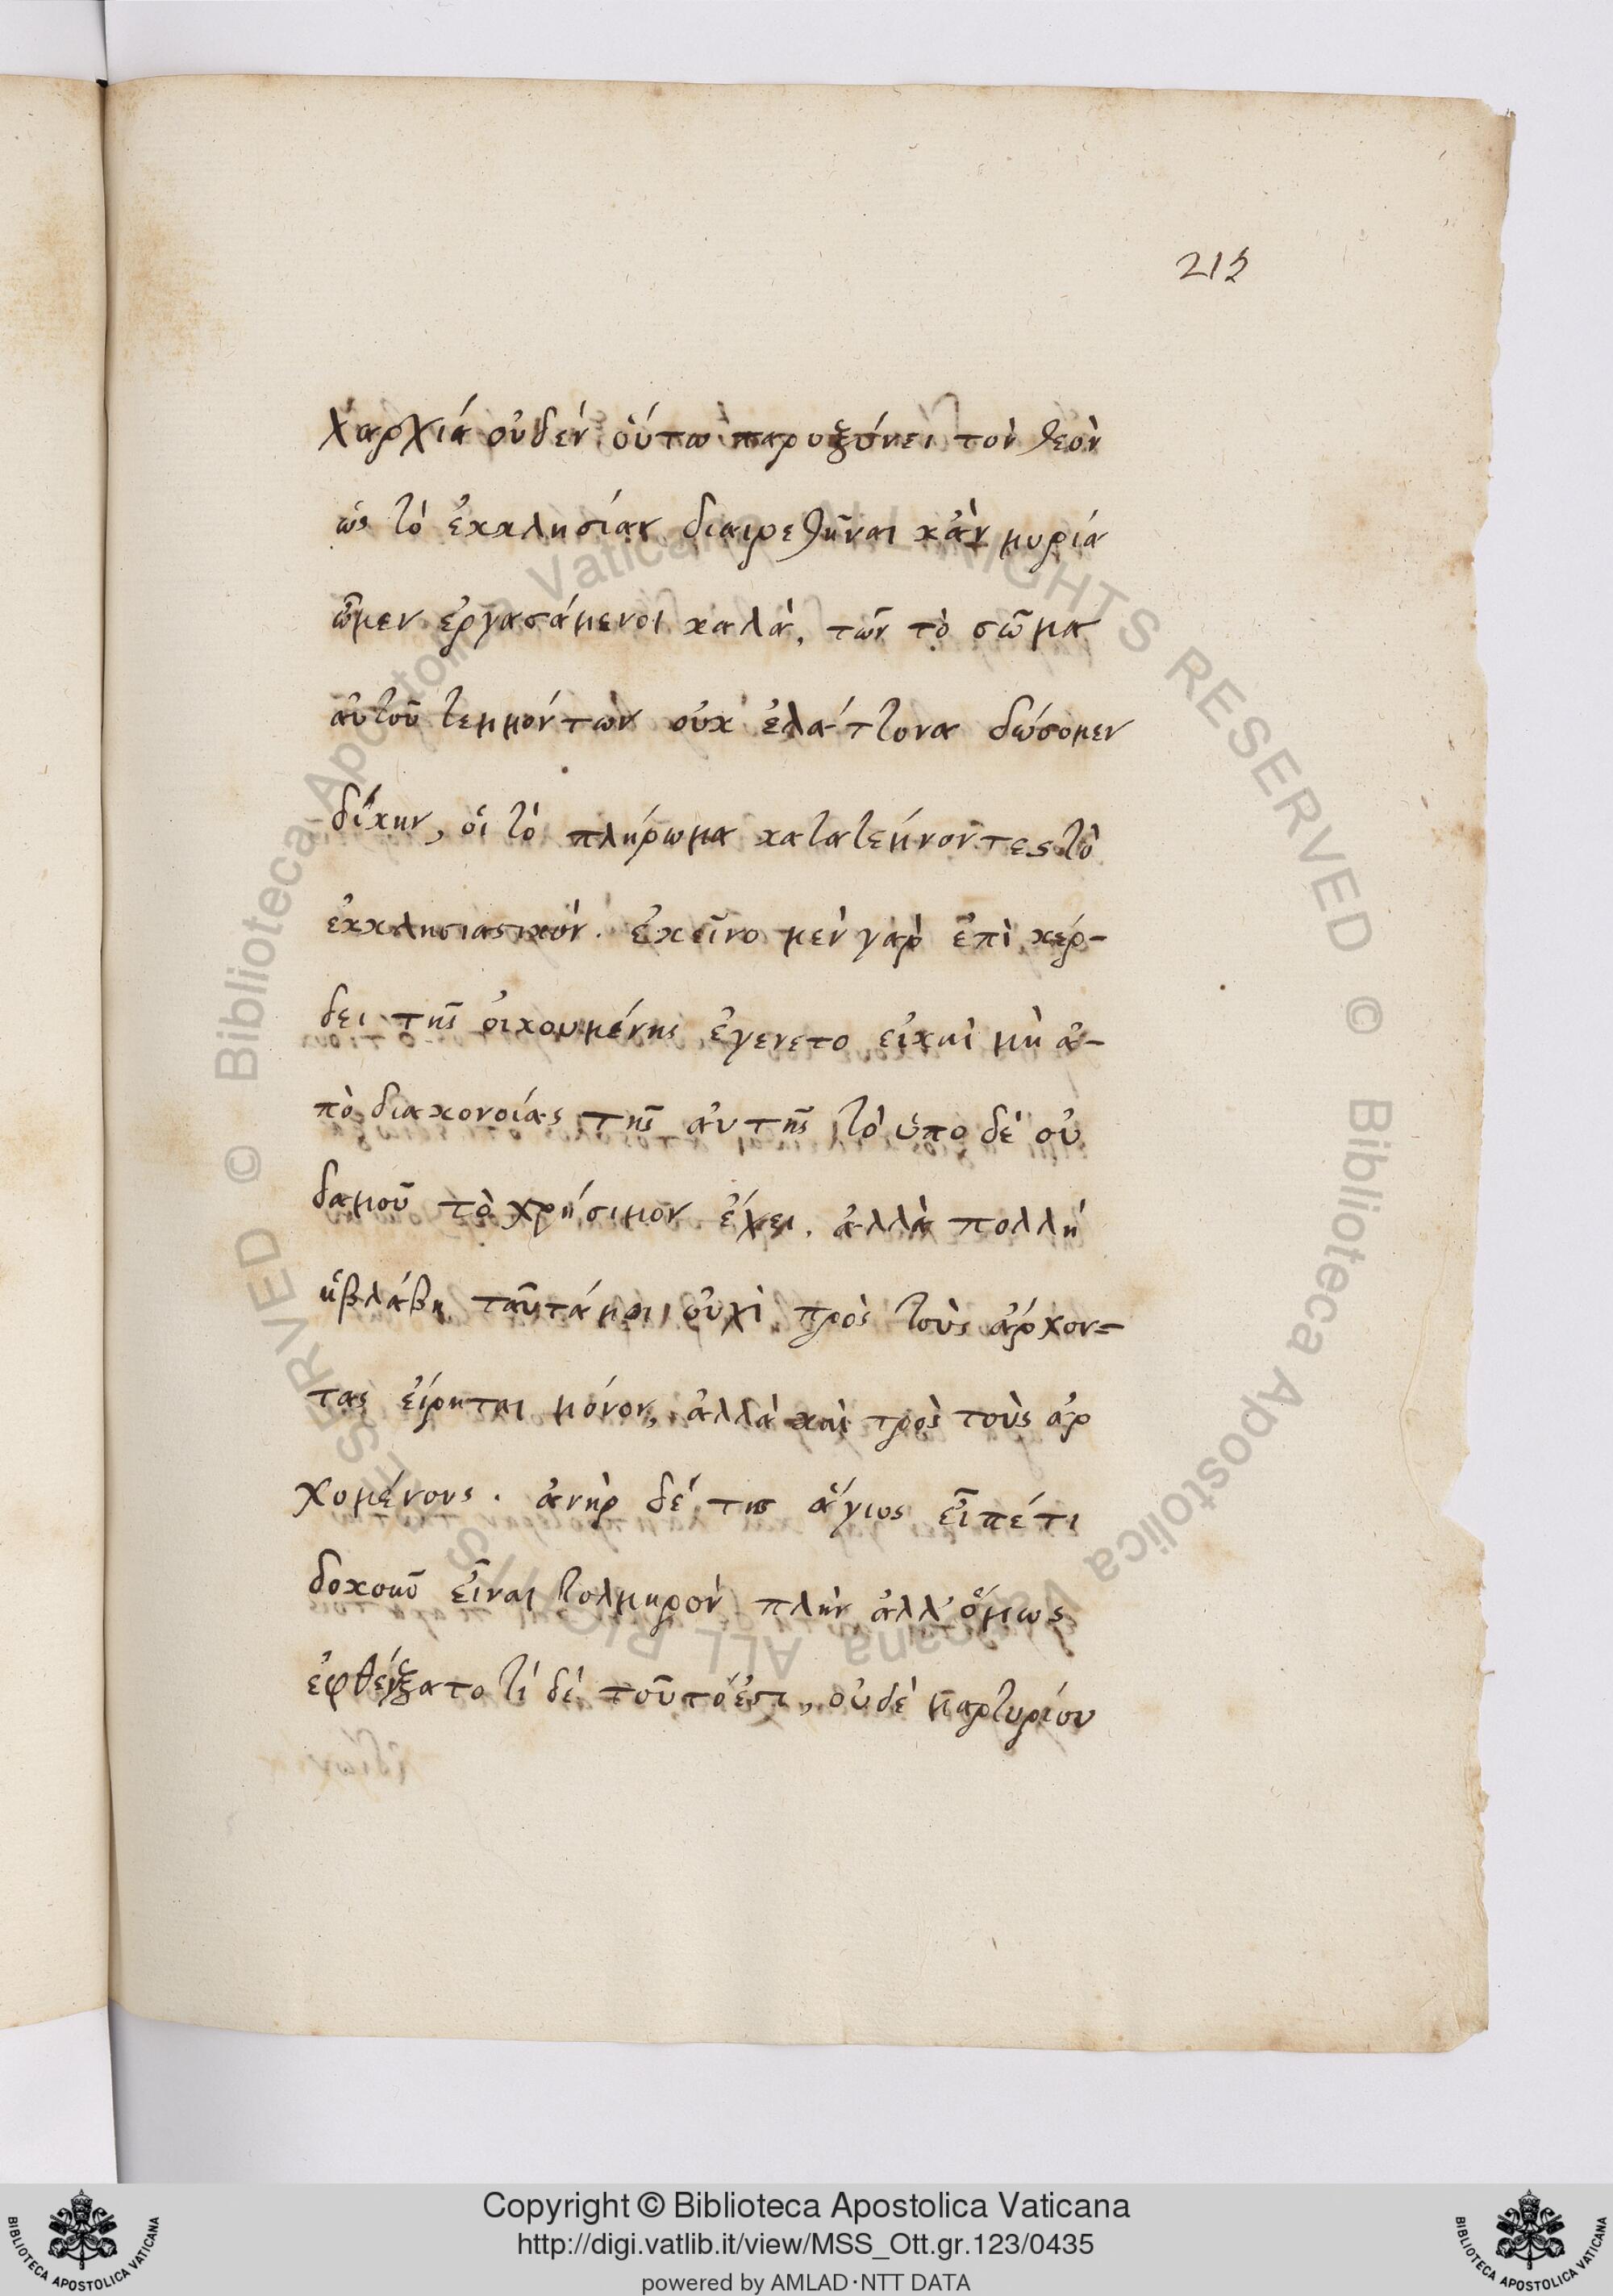 215
χαρχιά οὐδέν ὁύτω παροξύνει τὸν θεὸν
ὡς τὸ ἐκκλησίαν διαιρεθῆναι κἂν μυρία
ὦμεν ἐργασάμενοι καλὰ, τῶν τὸ σῶμα
αὐτοῦ τεμμόντων οὐκ ἐλάττονα δώσομεν
δίκην, οἱ τὸ πλήρωμα κατατέμνοντες τὸ
ἐκκλησιαστικόν. ἐκεῖνο μὲν γὰρ ἐπὶ κέρ-
δει τῆς οἰκουμένης ἐγενετο εἰ καὶ μὴ ἀ-
πὸ διακονοίας τῆς αὐτῆς τὸ ὑπο δὲ οὐ
δαμοῦ τὸ χρήσιμον ἔχει. ἀλλὰ πολλή
ἡ βλάβη ταῦτά μοι οὐχὶ πρὸς τοὺς ἄρχον=
τας εἴρηται μόνον, ἀλλὰ καὶ πρὸς τοὺς ἀρ
χομένους. ἀνὴρ δέ τις ἅγιος εἶπέ τι
δοκοῦν εἶναι τολμηρόν πλὴν ἀλλ' ὅμως
ἐφθέγξατο τί δὲ τοῦτό ἐστι, οὐδὲ μαρτυρίου
Copyright © Biblioteca Apostolica Vaticana
http://digi.vatlib.it/view/MSS_Ott.gr.123/0435
powered by AMLAD·NTT DATA
BIBLIOTECA APOSTOLICA VATICANA
BIBLIOTECA APOSTOLICA VATICANA
© Biblioteca Apostolica Vaticana ALL RIGHTS RESERVED © Biblioteca Apostolica Vaticana ALL RIGHTS RESERVED